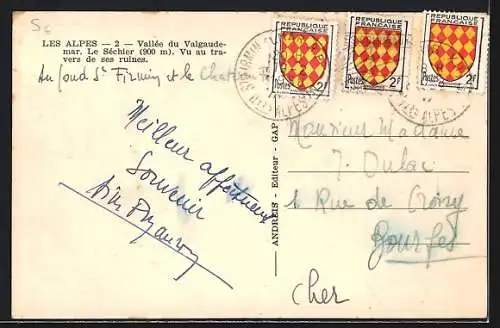 56
LES ALPES — 2 — Vallée du Valgaude-
mar. Le Séchier (900 m). Vu au tra-
vers de ses ruines.
Au fond St Firmin et le
Meilleur affectueux
Souvenir
ANDREIS - Editeur - GAP
REPUBLIQUE FRANÇAISE
Postes 2F
REPUBLIQUE FRANÇAISE
Postes 2F
REPUBLIQUE FRANÇAISE
Postes 2F
ST FIRMIN
HTES ALPES
Monsieur Madame
J. Dulac
1 Rue de Croisy
Bourges
Cher